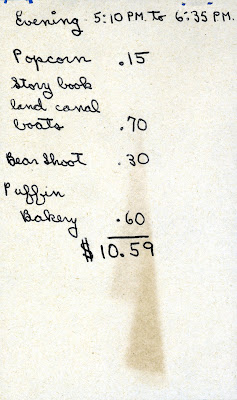 Evening 5:10 P.M. To 6:35 P.M.
Popcorn .15
Story book
land canal
boats .70
Bear Shoot .30
Puffin
Bakery .60
$10.59